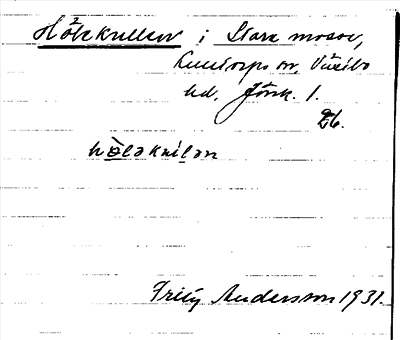 Hålekullen i Stora mosse,
Kulltorps sn, Västbo
hd, Jönk. l.
26.
hå̀lǝkɯlan
Fritz Andersson 1931.